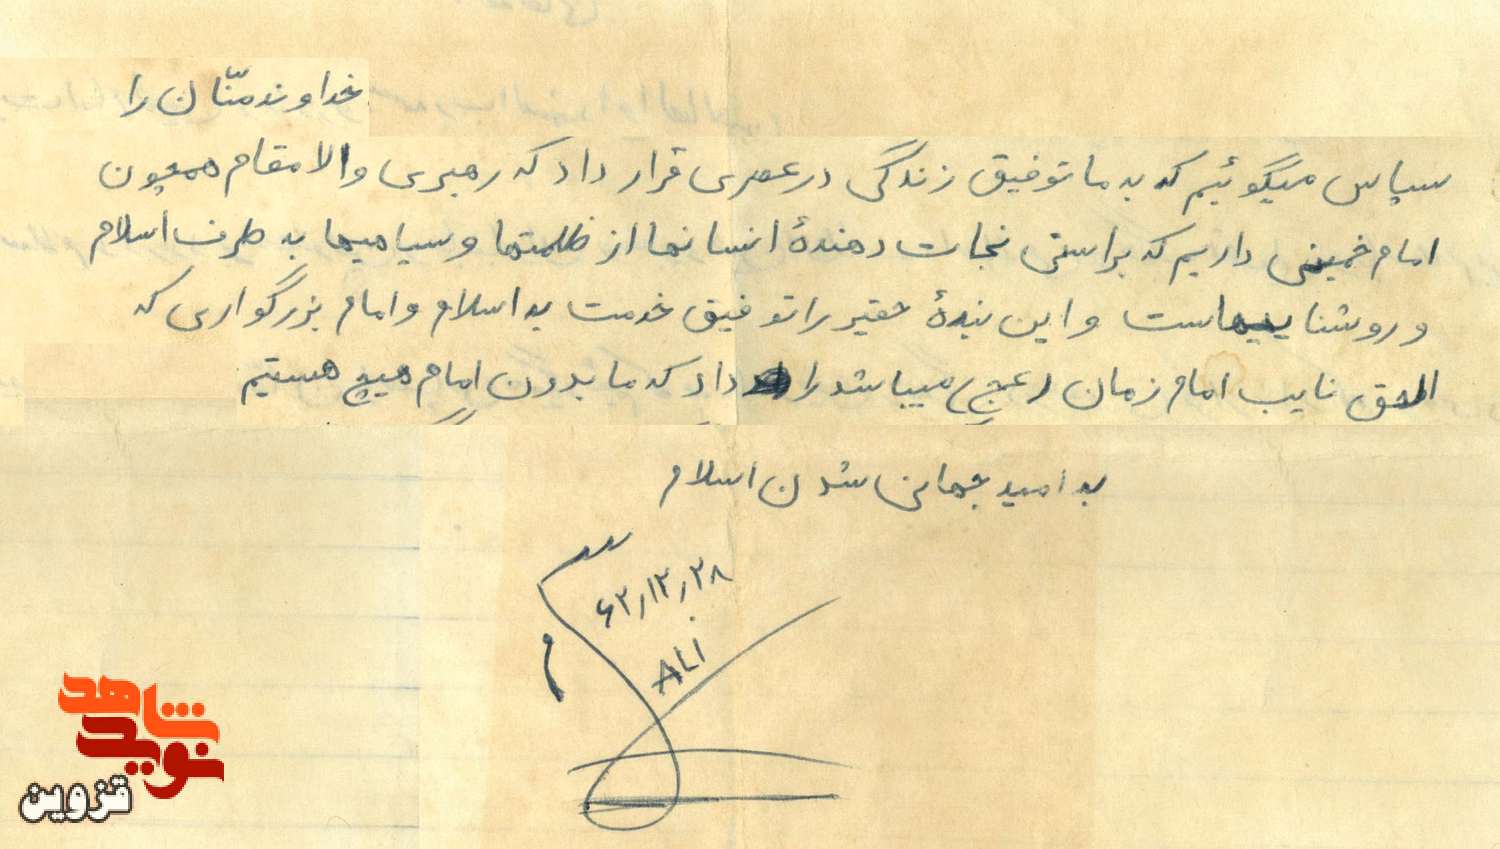 خداوند منّان را
سپاس میگوئیم که به ما توفیق زندگی در عصری قرار داد که رهبری والا مقام همچون
امام خمینی داریم که براستی نجات دهندهٔ انسانها از ظلمتها و سیاهیها به طرف اسلام
و روشناییهاست و این بندهٔ حقیر را توفیق خدمت به اسلام و امام بزرگواری که
الحق نایب امام زمان (عج) میباشد را داد که ما بدون امام هیچ هستیم
به امید جهانی شدن اسلام
۶۲/۱۲/۲۸
ALI
شاهد
نوید
قزوین